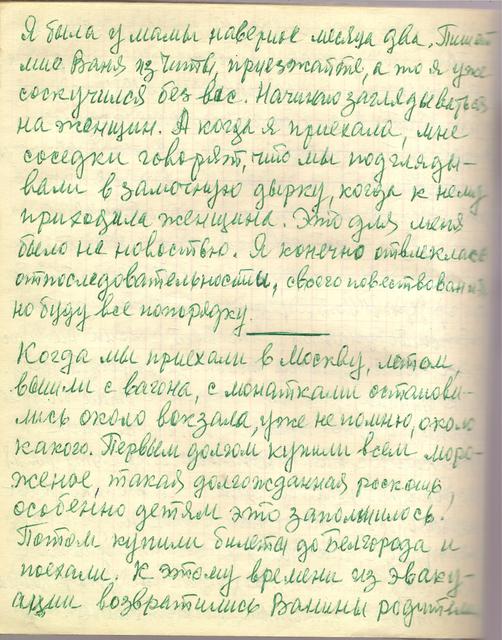 Я была у мамы наверное месяца два. Пишет
мне Ваня из Читы, приезжайте, а то я уже
соскучился без вас. Начинаю заглядываться
на женщин. А когда я приехала, мне
соседки говорят, что мы подгляды-
вали в замочную дырку, когда к нему
приходила женщина. Это для меня
было не новостью. Я конечно отвлеклась
от последовательности, своего повествования
но буду всё по порядку.
Когда мы приехали в Москву, летом,
вышли с вагона, с монатками останови-
лись около вокзала, уже не помню, около
какого. Первым долгом купили всем моро-
женое, такая долгожданная роскошь,
особенно детям это запомнилось!
Потом купили билеты до Белгорода и
поехали. К этому времени из эваку-
ации возвратились Ванины родители